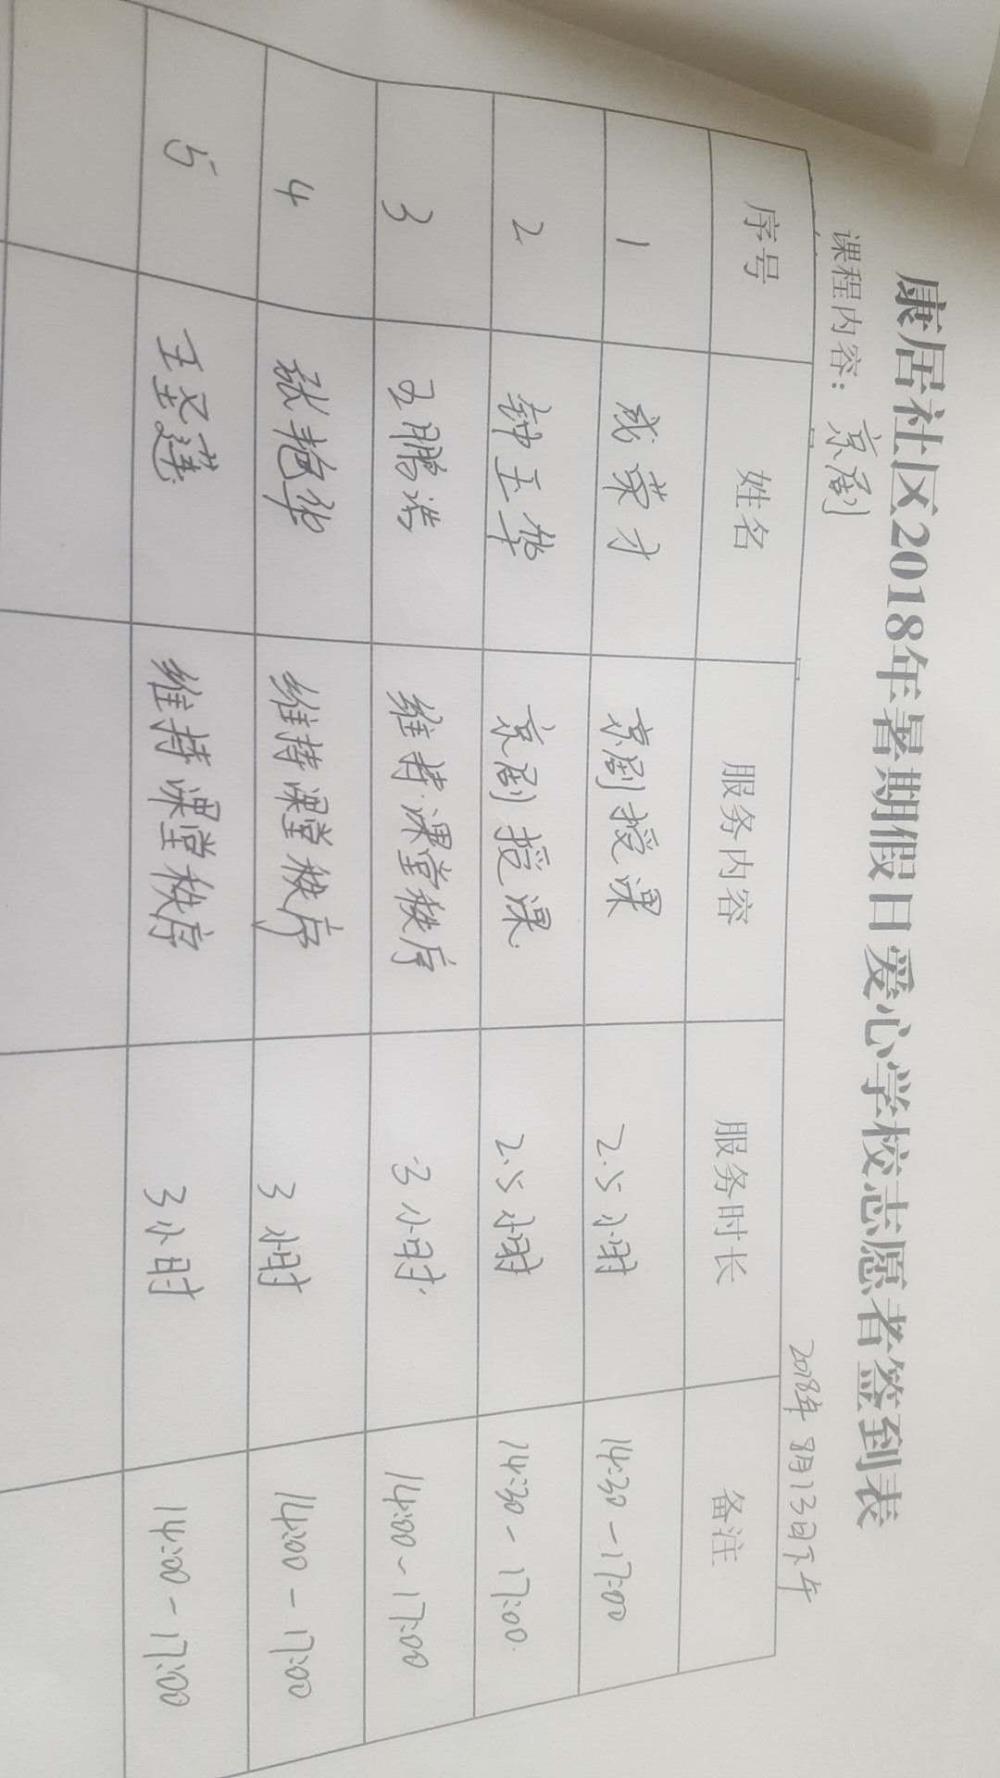 康居社区2018年暑期假日爱心学校志愿者签到表
课程内容：京剧 2018年8月13日下午
序号 姓名 服务内容 服务时长 备注
1 成荣才 京剧授课 2.5小时 14:30-17:00
2 钟玉华 京剧授课 2.5小时 14:30-17:00
3 王鹏浩 维持课堂秩序 3小时 14:00-17:00
4 张艳华 维持课堂秩序 3小时 14:00-17:00
5 维持课堂秩序 3小时 14:00-17:00